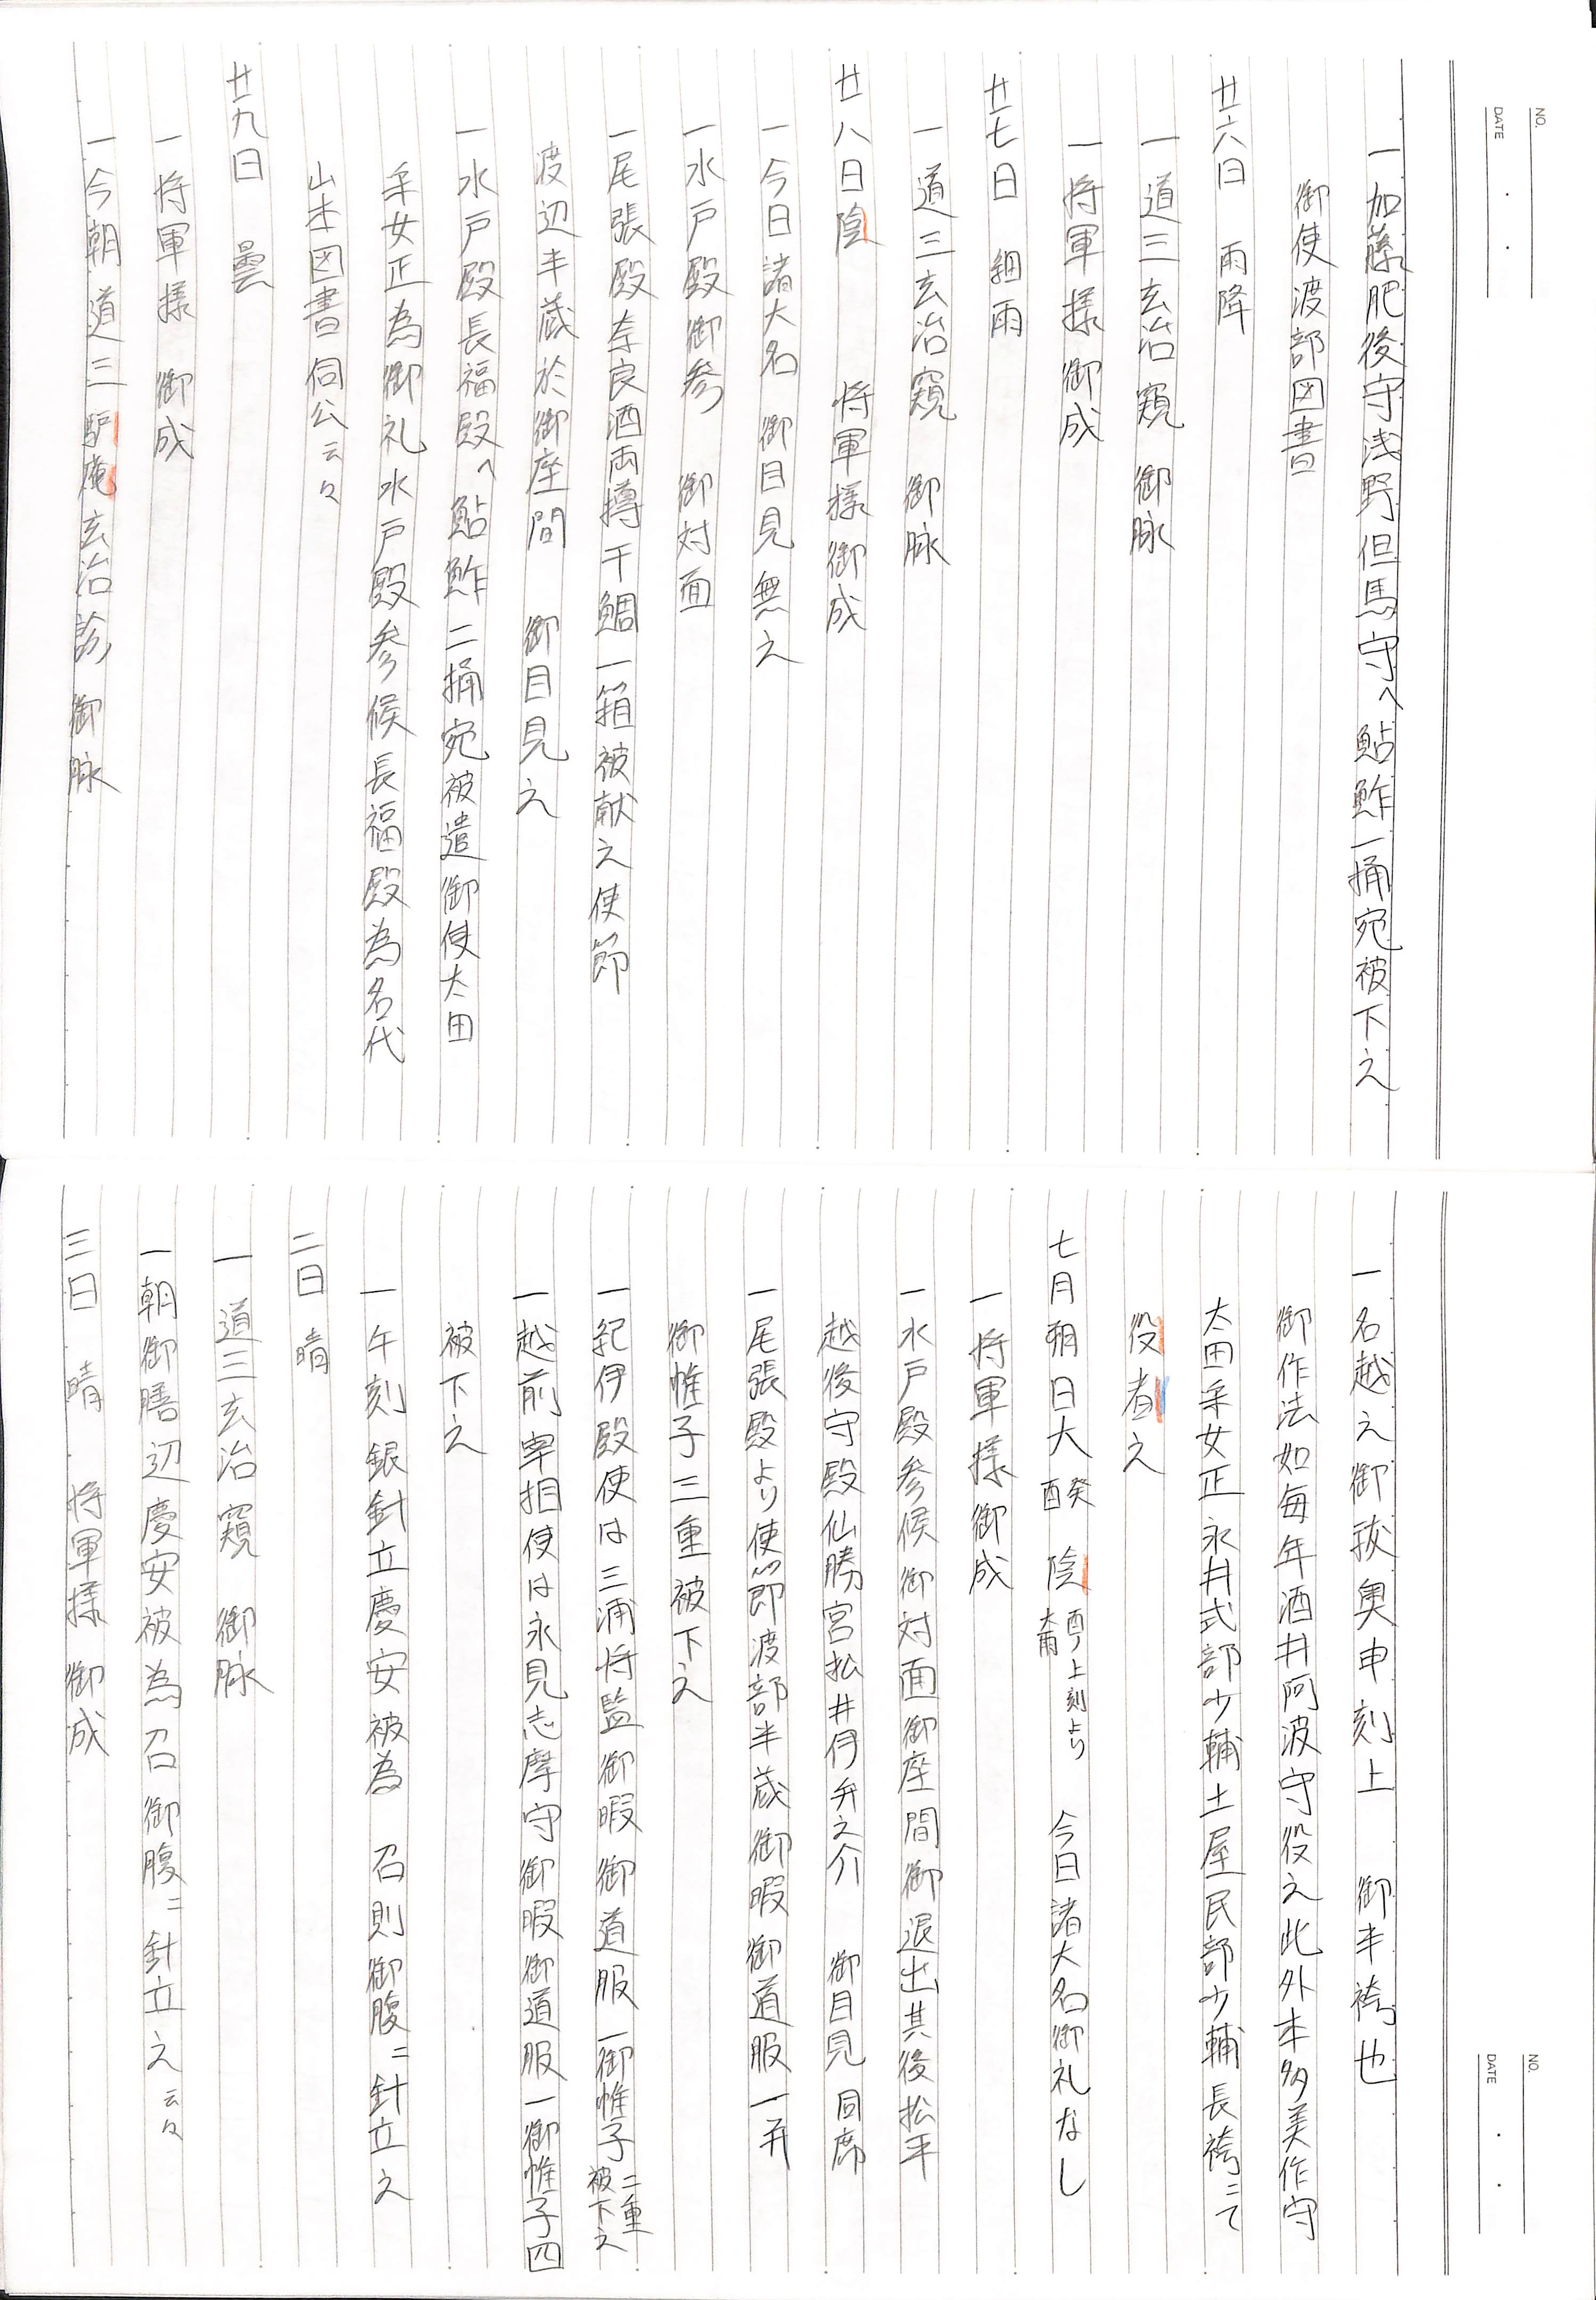 NO.
DATE
一加藤肥後守浅野但馬守へ鮎鮓一桶宛被下之
御使渡部図書
廿六日 雨降
一道三玄冶窺 御脉
一将軍様御成
廿七日 細雨
一道三玄冶窺 御脉
廿八日陰 将軍様御成
一今日諸大名 御目見無之
一水戸殿御参 御対面
一尾張殿奈良酒両樽干鯛一箱被献之使節
渡辺半蔵於御座間 御目見之
一水戸殿長福殿へ鮎鮓二桶宛被遣御使太田
采女正為御礼水戸殿参候長福殿為名代
山本図書伺公云々
廿九日 曇
一将軍様 御成
一今朝道三驢庵玄冶診 御脉
NO.
DATE
一名越之御祓奥申刻上 御半袴也
御作法如毎年酒井阿波守役之此外本多美作守
太田采女正永井式部少輔土屋民部少輔長袴ニて
役者之
七月朔日大 癸酉 陰 酉ノ上刻より大雨 今日諸大名御礼なし
一将軍様御成
一水戸殿参候御対面御座間御退出其後松平
越後守殿仙勝宮松井伊弁之介 御目見同席
一尾張殿より使節渡部半蔵御暇御道服一并
御帷子三重被下之
一紀伊殿使は三浦将監御暇御道服一御帷子二重被下之
一越前宰相使は永見志摩守御暇御道服一御帷子四
被下之
一午刻銀針立慶安被為 召則御腹ニ針立之
二日 晴
一道三玄冶窺 御脉
一朝御膳辺慶安被為召御腹ニ針立之云々
三日 晴 将軍様 御成